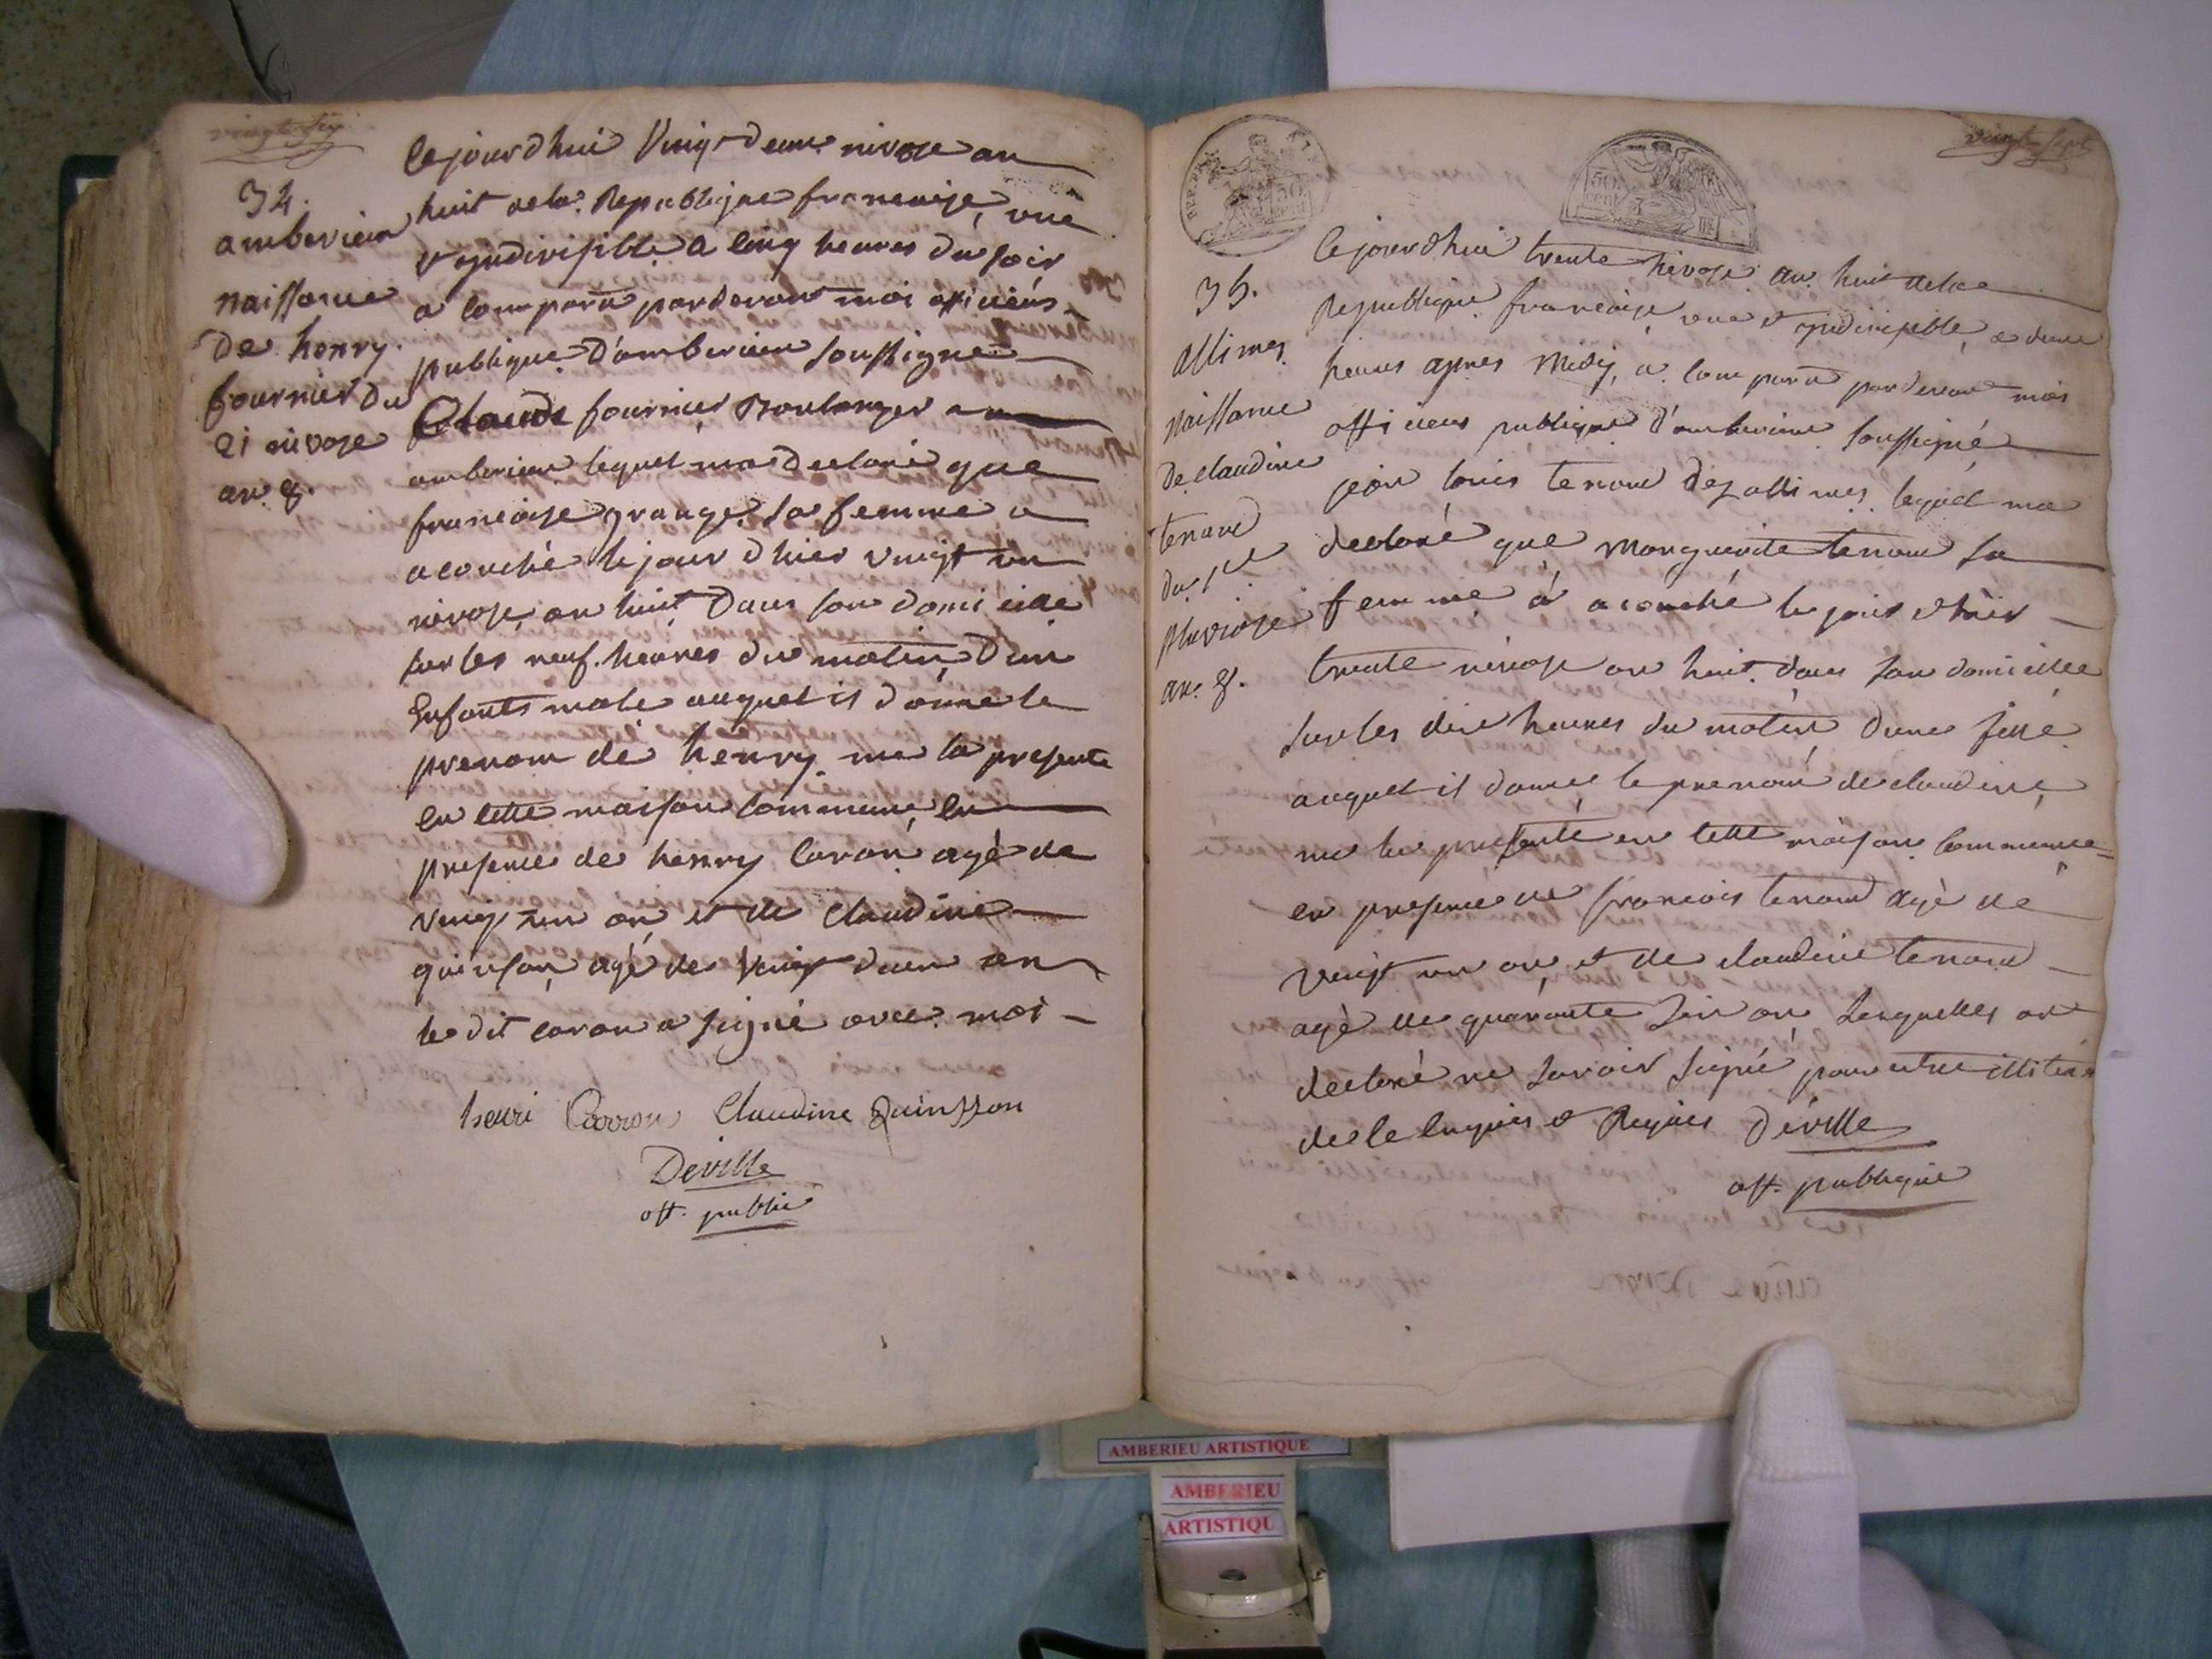 vingt six
34.
amberieu
naissance
de henry
fournier du
21 nivose
an 8.
Cejourdhui Vingt deux nivose an
huit dela Republique francaise, une
et indivisible a cinq heures du soir
a comparu pardevant moi officiers
publique d'amberieu soussigne
Claude fournier Boulanger a
amberieu lequel ma declaré que
francaise grange sa femme a
acouché le jour d hier vingt un
nivose an huit dans son domicille
sur les neuf heures du matin d'un
Enfants male auquel il donne le
prenom de henry me la presente
en cette maison commune en
presence de henry Caron agé de
vingt un an et de Claudine
quinson agé de Vingt deux an
le dit caron a signé avec moi
henri Carron Claudine Quinsson
Deville
off. public
vingt sept
50
cent
35.
allimes
naissance
de claudine
tenand
du 1er
pluviose
an 8.
Cejourdhui trente nivose an huit dela
Republique francaise une et indivisible, a deux
heures apres Midy, a comparu pardevant moi
officiers publique d'amberieu soussigné
jean louis tenand des allimes lequel ma
declaré que Marguerite tenand sa
femme à acouché le jour d'hier
trente nivose an huit dans son domicille
sur les dix heures du matin dune fille
auquel il donne le prenom de claudine
me la presenté en cette maison commune
en presence de francois tenand agé de
vingt un an, et de claudine tenand
agé de quarante six an lesquelles on
declaré ne savoir signé pour etre illiteré
de le enquis et Requis Déville
off. publique
AMBERIEU ARTISTIQUE
AMBERIEU
ARTISTIQU